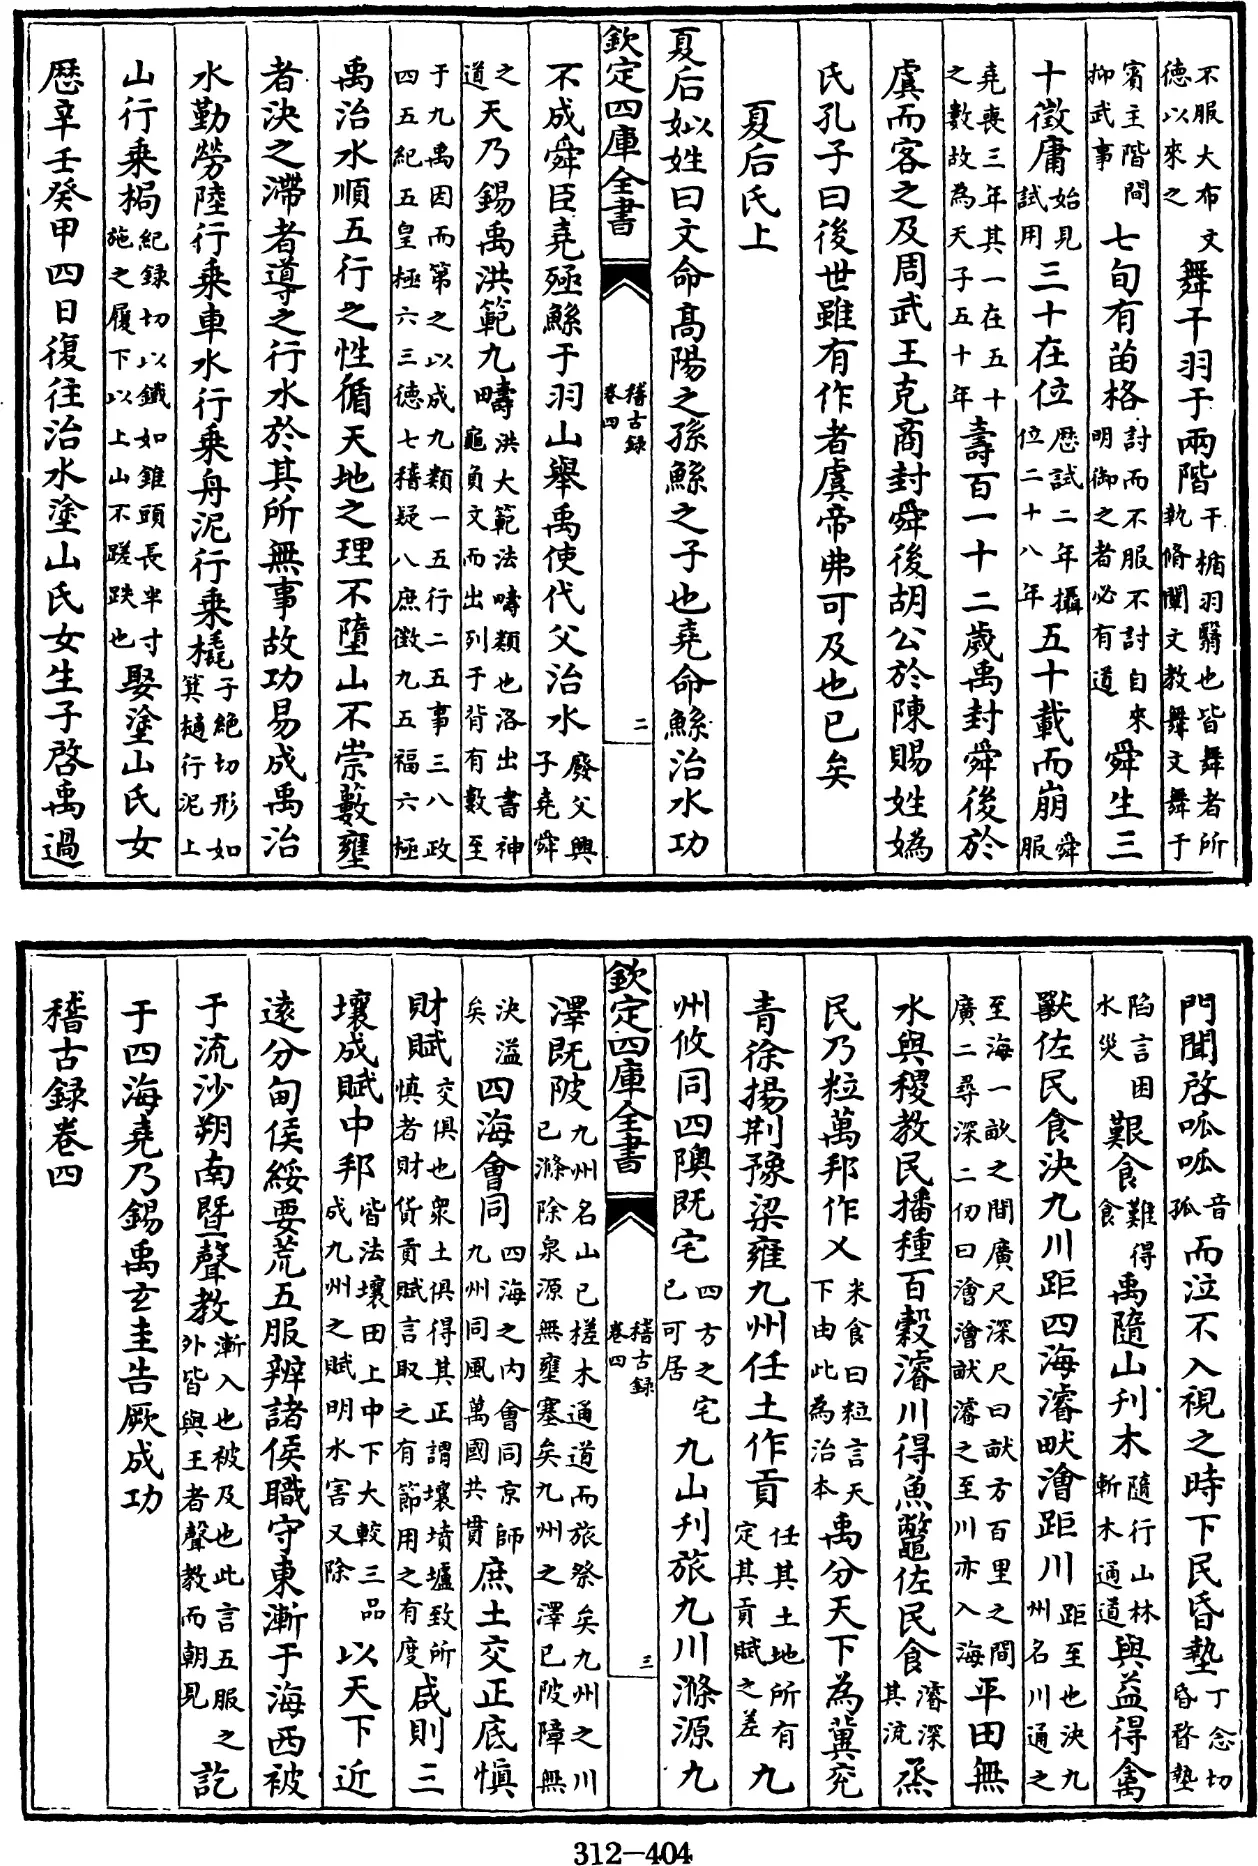 不服大布文德以來之舞干羽于兩階干楯羽翳也皆舞者所執脩闡文教舞文舞于
賓主階間抑武事七旬有苗格討而不服不討自來明御之者必有道舜生三
十徵庸始見試用三十在位歷試二年攝位二十八年五十載而崩舜服
堯喪三年其一在五十之數故為天子五十年壽百一十二歲禹封舜後於
虞而客之及周武王克商封舜後胡公於陳賜姓媯
氏孔子曰後世雖有作者虞帝弗可及也已矣
夏后氏上
夏后姒姓曰文命髙陽之孫鯀之子也堯命鯀治水功
欽定四庫全書 稽古録 卷四 二
不成舜臣堯殛鯀于羽山舉禹使代父治水廢父興子堯舜
之道天乃錫禹洪範九疇洪大範法疇類也洛出書神龜負文而出列于背有數至
于九禹因而第之以成九類一五行二五事三八政四五紀五皇極六三德七稽疑八庶徵九五福六極
禹治水順五行之性循天地之理不墮山不崇藪壅
者決之滯者導之行水於其所無事故功易成禹治
水勤勞陸行乘車水行乘舟泥行乘橇子絶切形如箕擿行泥上
山行乘梮紀録切以鐵如錐頭長半寸施之履下以上山不蹉跌也娶塗山氏女
歷辛壬癸甲四日復往治水塗山氏女生子啓禹過
門聞啓呱呱音孤而泣不入視之時下民昏墊丁念切昏瞀墊
陷言困水災艱食難得食禹隨山刋木隨行山林斬木通道與益得禽
獸佐民食決九川距四海濬畎澮距川距至也決九州名川通之
至海一畝之間廣尺深尺曰畎方百里之間廣二尋深二仞曰澮澮畎濬之至川亦入海平田無
水與稷教民播種百穀濬川得魚鼈佐民食濬深其流烝
民乃粒萬邦作乂米食曰粒言天下由此為治本禹分天下為冀兖
青徐揚荆豫梁雍九州任土作貢任其土地所有定其貢賦之差九
州攸同四隩既宅四方之宅已可居九山刋旅九川滌源九
欽定四庫全書 稽古録 卷四 三
澤既陂九州名山已槎木通道而旅祭矣九州之川已滌除泉源無壅塞矣九州之澤已陂障無
決溢矣四海會同四海之内會同京師九州同風萬國共貫庶土交正底慎
財賦交俱也衆土俱得其正謂壤墳壚致所慎者財貨貢賦言取之有節用之有度咸則三
壤成賦中邦皆法壤田上中下大較三品成九州之賦明水害又除以天下近
逺分甸侯綏要荒五服辨諸侯職守東漸于海西被
于流沙朔南暨聲教漸入也被及也此言五服之外皆與王者聲教而朝見訖
于四海堯乃錫禹玄圭告厥成功
稽古録卷四
312-404